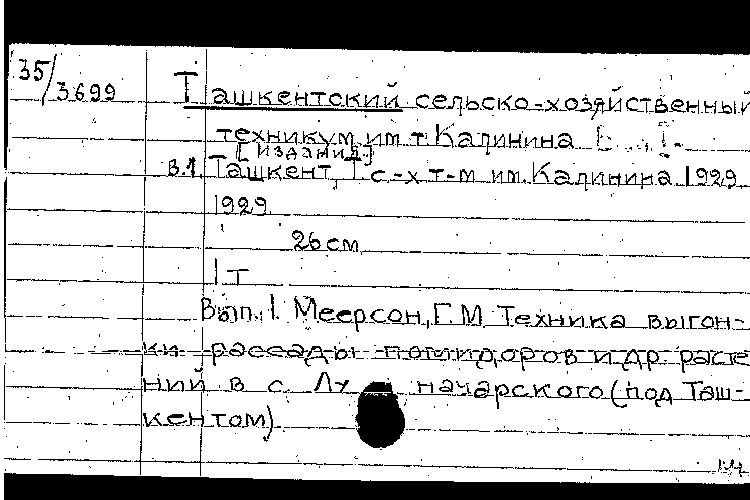 35/3699
Ташкентский сельско-хозяйственный
техникум им. т. Калинина
[Издания]
в.1. Ташкент, Т с-х т-м им. Калинина 1929
1929
26 см
1 т
Вып. 1. Меерсон, Г.М. Техника выгон-
ки рассады помидоров и др. расте
ний в с. Лу начарского (под Таш-
кентом).